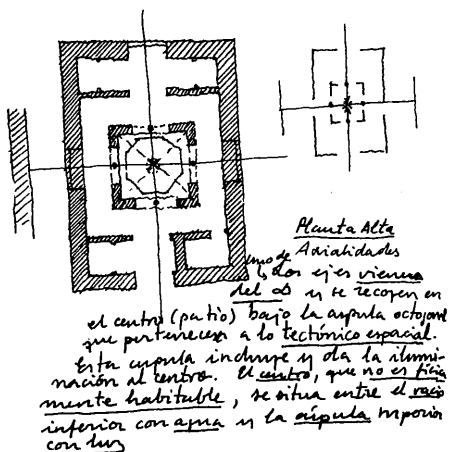 Planta Alta
uno de Axialidades
los ejes viene
del ∞ y se recogen en
el centro (patio) bajo la cúpula octogonal
que pertenece a lo tectónico espacial.
Esta cúpula incluye y da la ilumi-
nación al centro. El centro, que no es física
mente habitable, se situa entre el vacío
inferior con agua y la cúpula superior
con luz